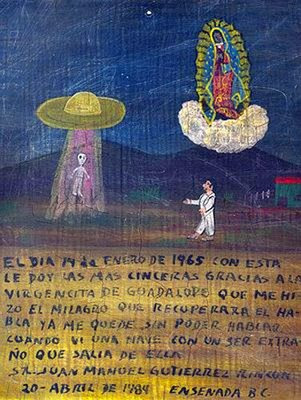 EL DIA 14 de ENERO DE 1965 CON ESTA
LE DOY LAS MAS CINCERAS GRACIAS A LA
VIRGENCITA DE GUADALOPE QUE ME HI
ZO EL MILAGRO QUE RECUPERARA EL HA-
BLA YA ME QUEDE SIN PODER HABLAR
CUANDO VI UNA NAVE CON UN SER EXTRA-
ÑO QUE SALIA DE ELLA
SR. JUAN MANUEL GUTIERREZ RINCON
20-ABRIL DE 1984 ENSENADA B.C.